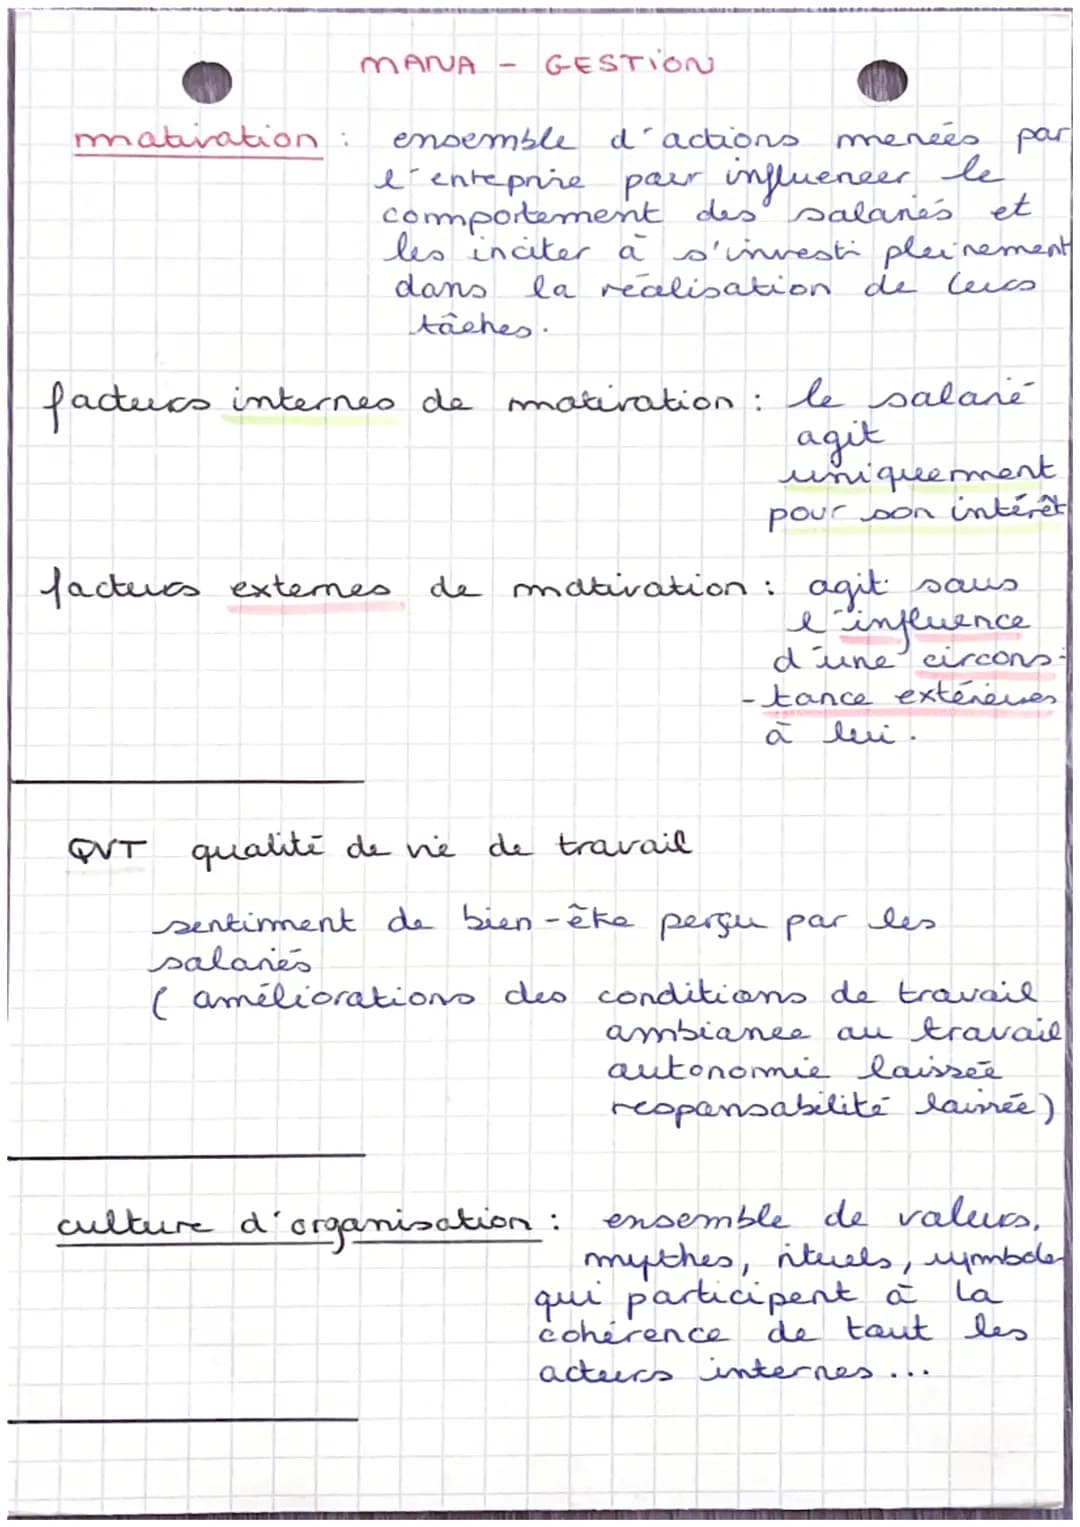 MANA - GESTION
motivation : ensemble d'actions menées par
l'enteprise pour influencer le
comportement des salariés et
les inciter à s'investi pleinement
dans la réalisation de leurs
tâches.
facteurs internes de motivation : le salarié
agit
uniquement
pour son intérêt
facteurs externes de motivation : agit sous
l'influence
d'une circons-
-tance extérieures
à lui.
QVT qualité de vie de travail
sentiment de bien-être perçu par les
salariés
( améliorations des conditions de travail
ambiance au travail
autonomie laissée
responsabilité laissée)
culture d'organisation : ensemble de valeurs,
mythes, rituels, symboles
qui participent à la
cohérence de tout les
acteurs internes...